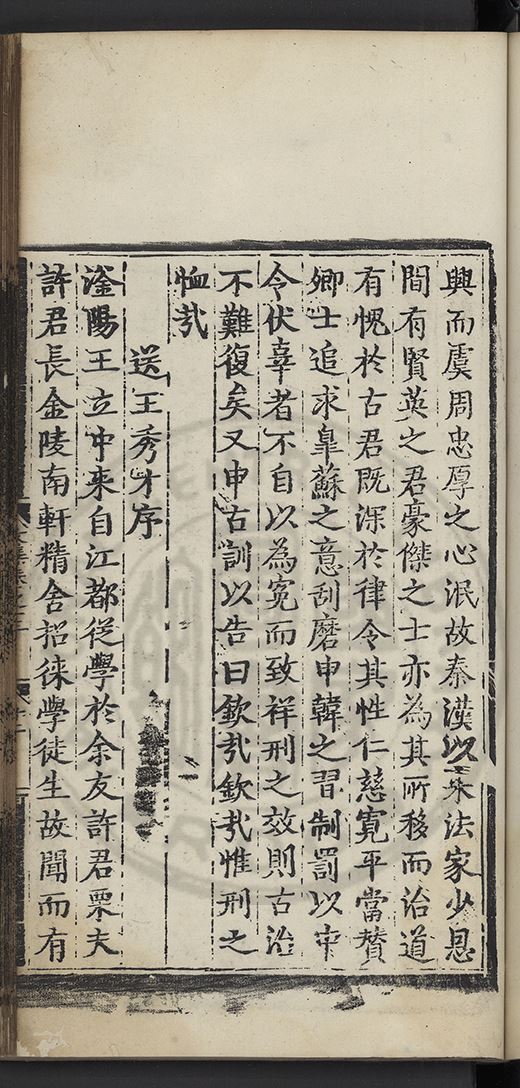 興而虞周忠厚之心泯故秦漢以來法家少恩
間有賢英之君豪傑之士亦為其所移而治道
有愧於古君既深於律令其性仁慈寬平當贊
卿士追求臯蘇之意刮磨申韓之習制罰以中
令伏辜者不自以為冤而致祥刑之效則古治
不難復矣又申古訓以告曰欽㢤欽㢤惟刑之
恤㢤
送王秀才序
滏陽王立中來自江都從學於余友許君栗夫
許君長金陵南軒精舍招徠學徒生故聞而有